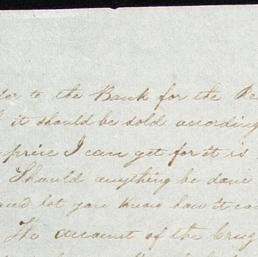 to the Bank for the
it should be sold according
price I can get for it is
Should anything be done
and let you know how it
The amount of the